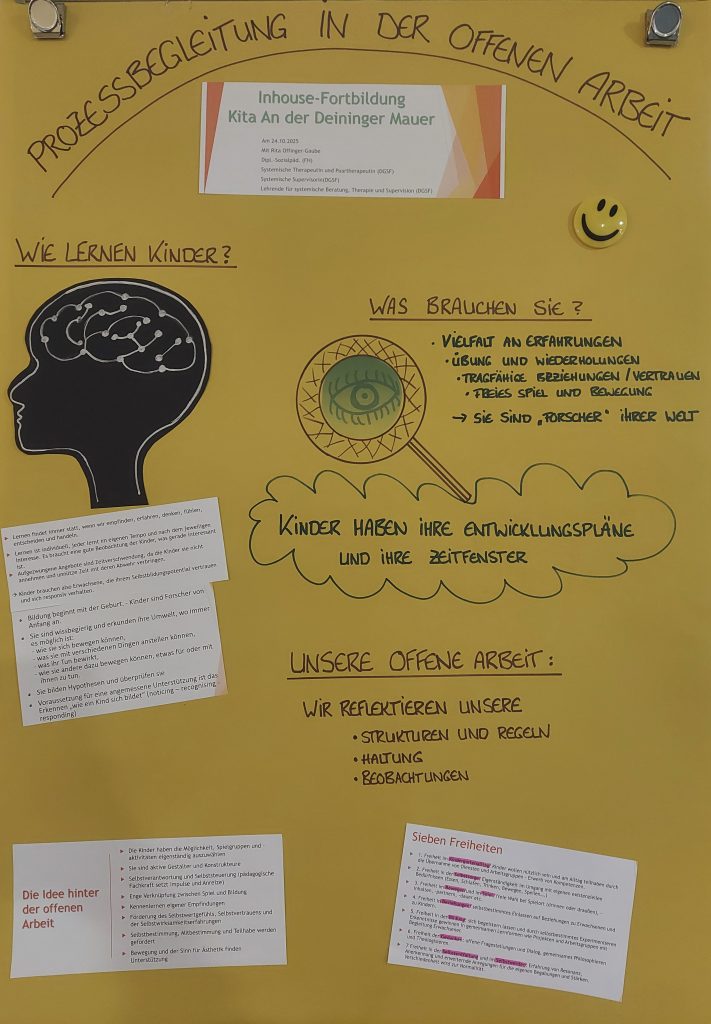 PROZESSBEGLEITUNG IN DER OFFENEN ARBEIT
Inhouse-Fortbildung
Kita An der Deininger Mauer
Am 24.10.2025
Mit Rita Offinger-Gaube
Dipl.-Sozialpäd. (FH)
Systemische Therapeutin und Paartherapeutin (DGSF)
Systemische Supervisorin(DGSF)
Lehrende für systemische Beratung, Therapie und Supervision (DGSF)
WIE LERNEN KINDER?
WAS BRAUCHEN SIE?
• VIELFALT AN ERFAHRUNGEN
• ÜBUNG UND WIEDERHOLUNGEN
• TRAGFÄHIGE BEZIEHUNGEN / VERTRAUEN
• FREIES SPIEL UND BEWEGUNG
→ SIE SIND „FORSCHER" IHRER WELT
KINDER HABEN IHRE ENTWICKLUNGSPLÄNE
UND IHRE ZEITFENSTER
Lernen findet immer statt, wenn wir empfinden, erfahren, denken, fühlen,
entscheiden und handeln.
Lernen ist individuell, jeder lernt im eigenen Tempo und nach dem jeweiligen
Interesse. Es braucht eine gute Beobachtung der Kinder, was gerade interessant
ist.
Aufgezwungene Angebote sind Zeitverschwendung, da die Kinder sie nicht
annehmen und unnütze Zeit mit deren Abwehr verbringen.
→ Kinder brauchen also Erwachsene, die ihrem Selbstbildungspotential vertrauen
und sich responsiv verhalten.
• Bildung beginnt mit der Geburt. - Kinder sind Forscher von
Anfang an.
• Sie sind wissbegierig und erkunden ihre Umwelt, wo immer
es möglich ist:
- wie sie sich bewegen können,
- was sie mit verschiedenen Dingen anstellen können,
- was ihr Tun bewirkt,
- wie sie andere dazu bewegen können, etwas für oder mit
ihnen zu tun.
• Sie bilden Hypothesen und überprüfen sie
• Voraussetzung für eine angemessene Unterstützung ist das
Erkennen „wie ein Kind sich bildet" (noticing – recognising,
responding)
UNSERE OFFENE ARBEIT:
WIR REFLEKTIEREN UNSERE
• STRUKTUREN UND REGELN
• HALTUNG
• BEOBACHTUNGEN
Die Idee hinter
der offenen
Arbeit
Die Kinder haben die Möglichkeit, Spielgruppen und -
aktivitäten eigenständig auszuwählen
Sie sind aktive Gestalter und Konstrukteure
Selbstverantwortung und Selbststeuerung (pädagogische
Fachkraft setzt Impulse und Anreize)
Enge Verknüpfung zwischen Spiel und Bildung
Kennenlernen eigener Empfindungen
Förderung des Selbstwertgefühls, Selbstvertrauens und
der Selbstwirksamkeitserfahrungen
Selbstbestimmung, Mitbestimmung und Teilhabe werden
gefördert
Bewegung und der Sinn für Ästhetik finden
Unterstützung
Sieben Freiheiten
1. Freiheit im Kindergartenalltag: Kinder wollen nützlich sein und am Alltag teilhaben durch
die Übernahme von Diensten und Arbeitsgruppen - Erwerb von Kompetenzen.
2. Freiheit in der Selbstsorge: Eigenständigkeit im Umgang mit eigenen existenziellen
Bedürfnissen (Essen, Schlafen, Trinken, Bewegen, Spielen...)
3. Freiheit im Bewegen und im Spielen: freie Wahl bei Spielort (drinnen oder draußen), -
inhalten, -partnern, -dauer etc.
4. Freiheit in Beziehungen: selbstbestimmtes Einlassen auf Beziehungen zu Erwachsenen und
zu Kindern.
5. Freiheit in der Bildung: sich begeistern lassen und durch selbstbestimmtes Experimentieren
Erkenntnisse gewinnen in gemeinsamen Lernformen wie Projekten und Arbeitsgruppen mit
Begleitung Erwachsener.
6. Freiheit der Gedanken: offene Fragestellungen und Dialog, gemeinsames Philosophieren
und Theologisieren
7. Freiheit in der Selbstentfaltung und im Selbstwerden: Erfahrung von Resonanz,
Anerkennung und erweiternde Anregungen für die eigenen Begabungen und Stärken.
Verschiedenheit wird zur Normalität.